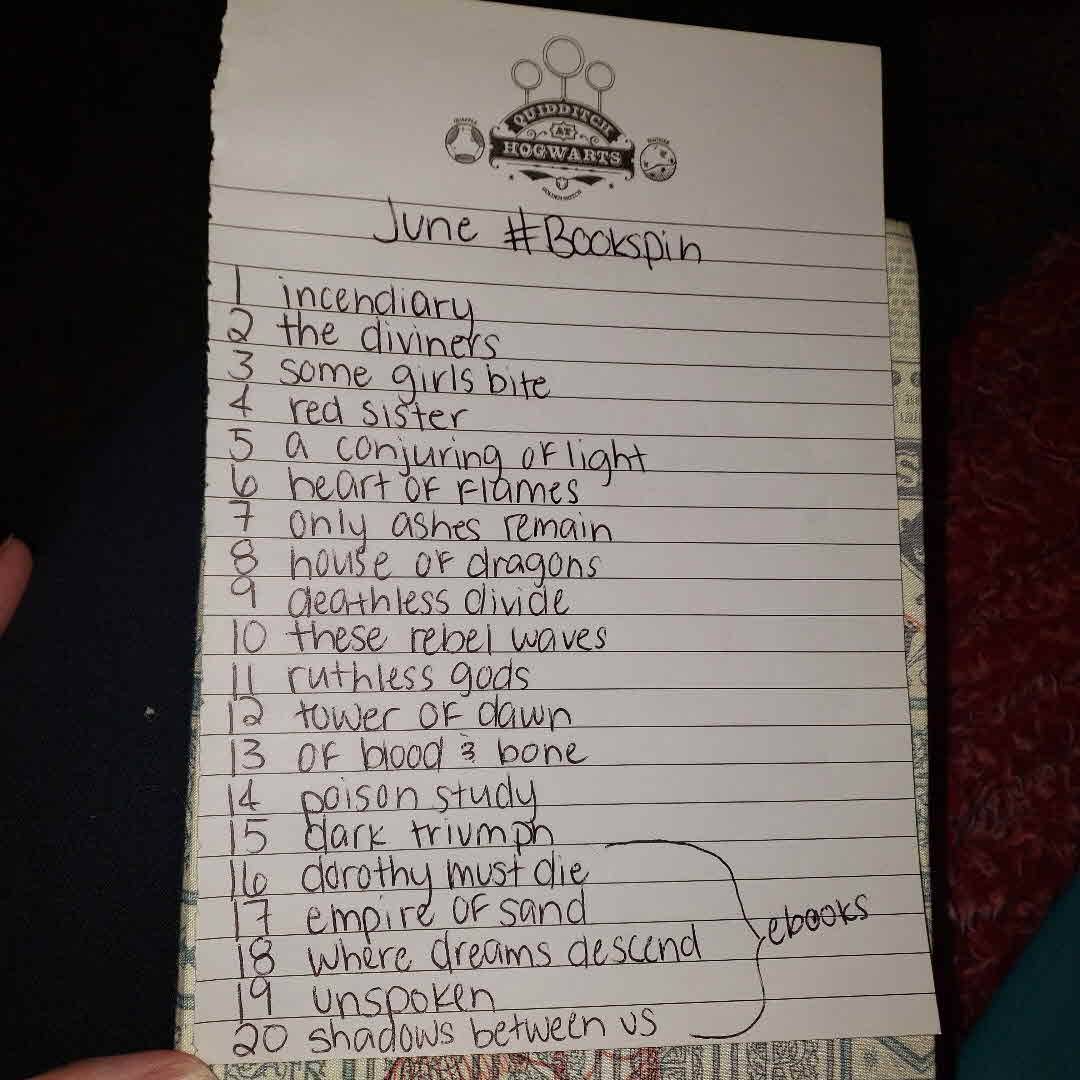 QUIDDITCH
AT
HOGWARTS
June #Bookspin
1 incendiary
2 the diviners
3 some girls bite
4 red sister
5 a conjuring of light
6 heart of flames
7 only ashes remain
8 house of dragons
9 deathless divide
10 these rebel waves
11 ruthless gods
12 tower of dawn
13 of blood & bone
14 poison study
15 dark triumph
16 dorothy must die
17 empire of sand
18 where dreams descend
19 unspoken
20 shadows between us
ebooks